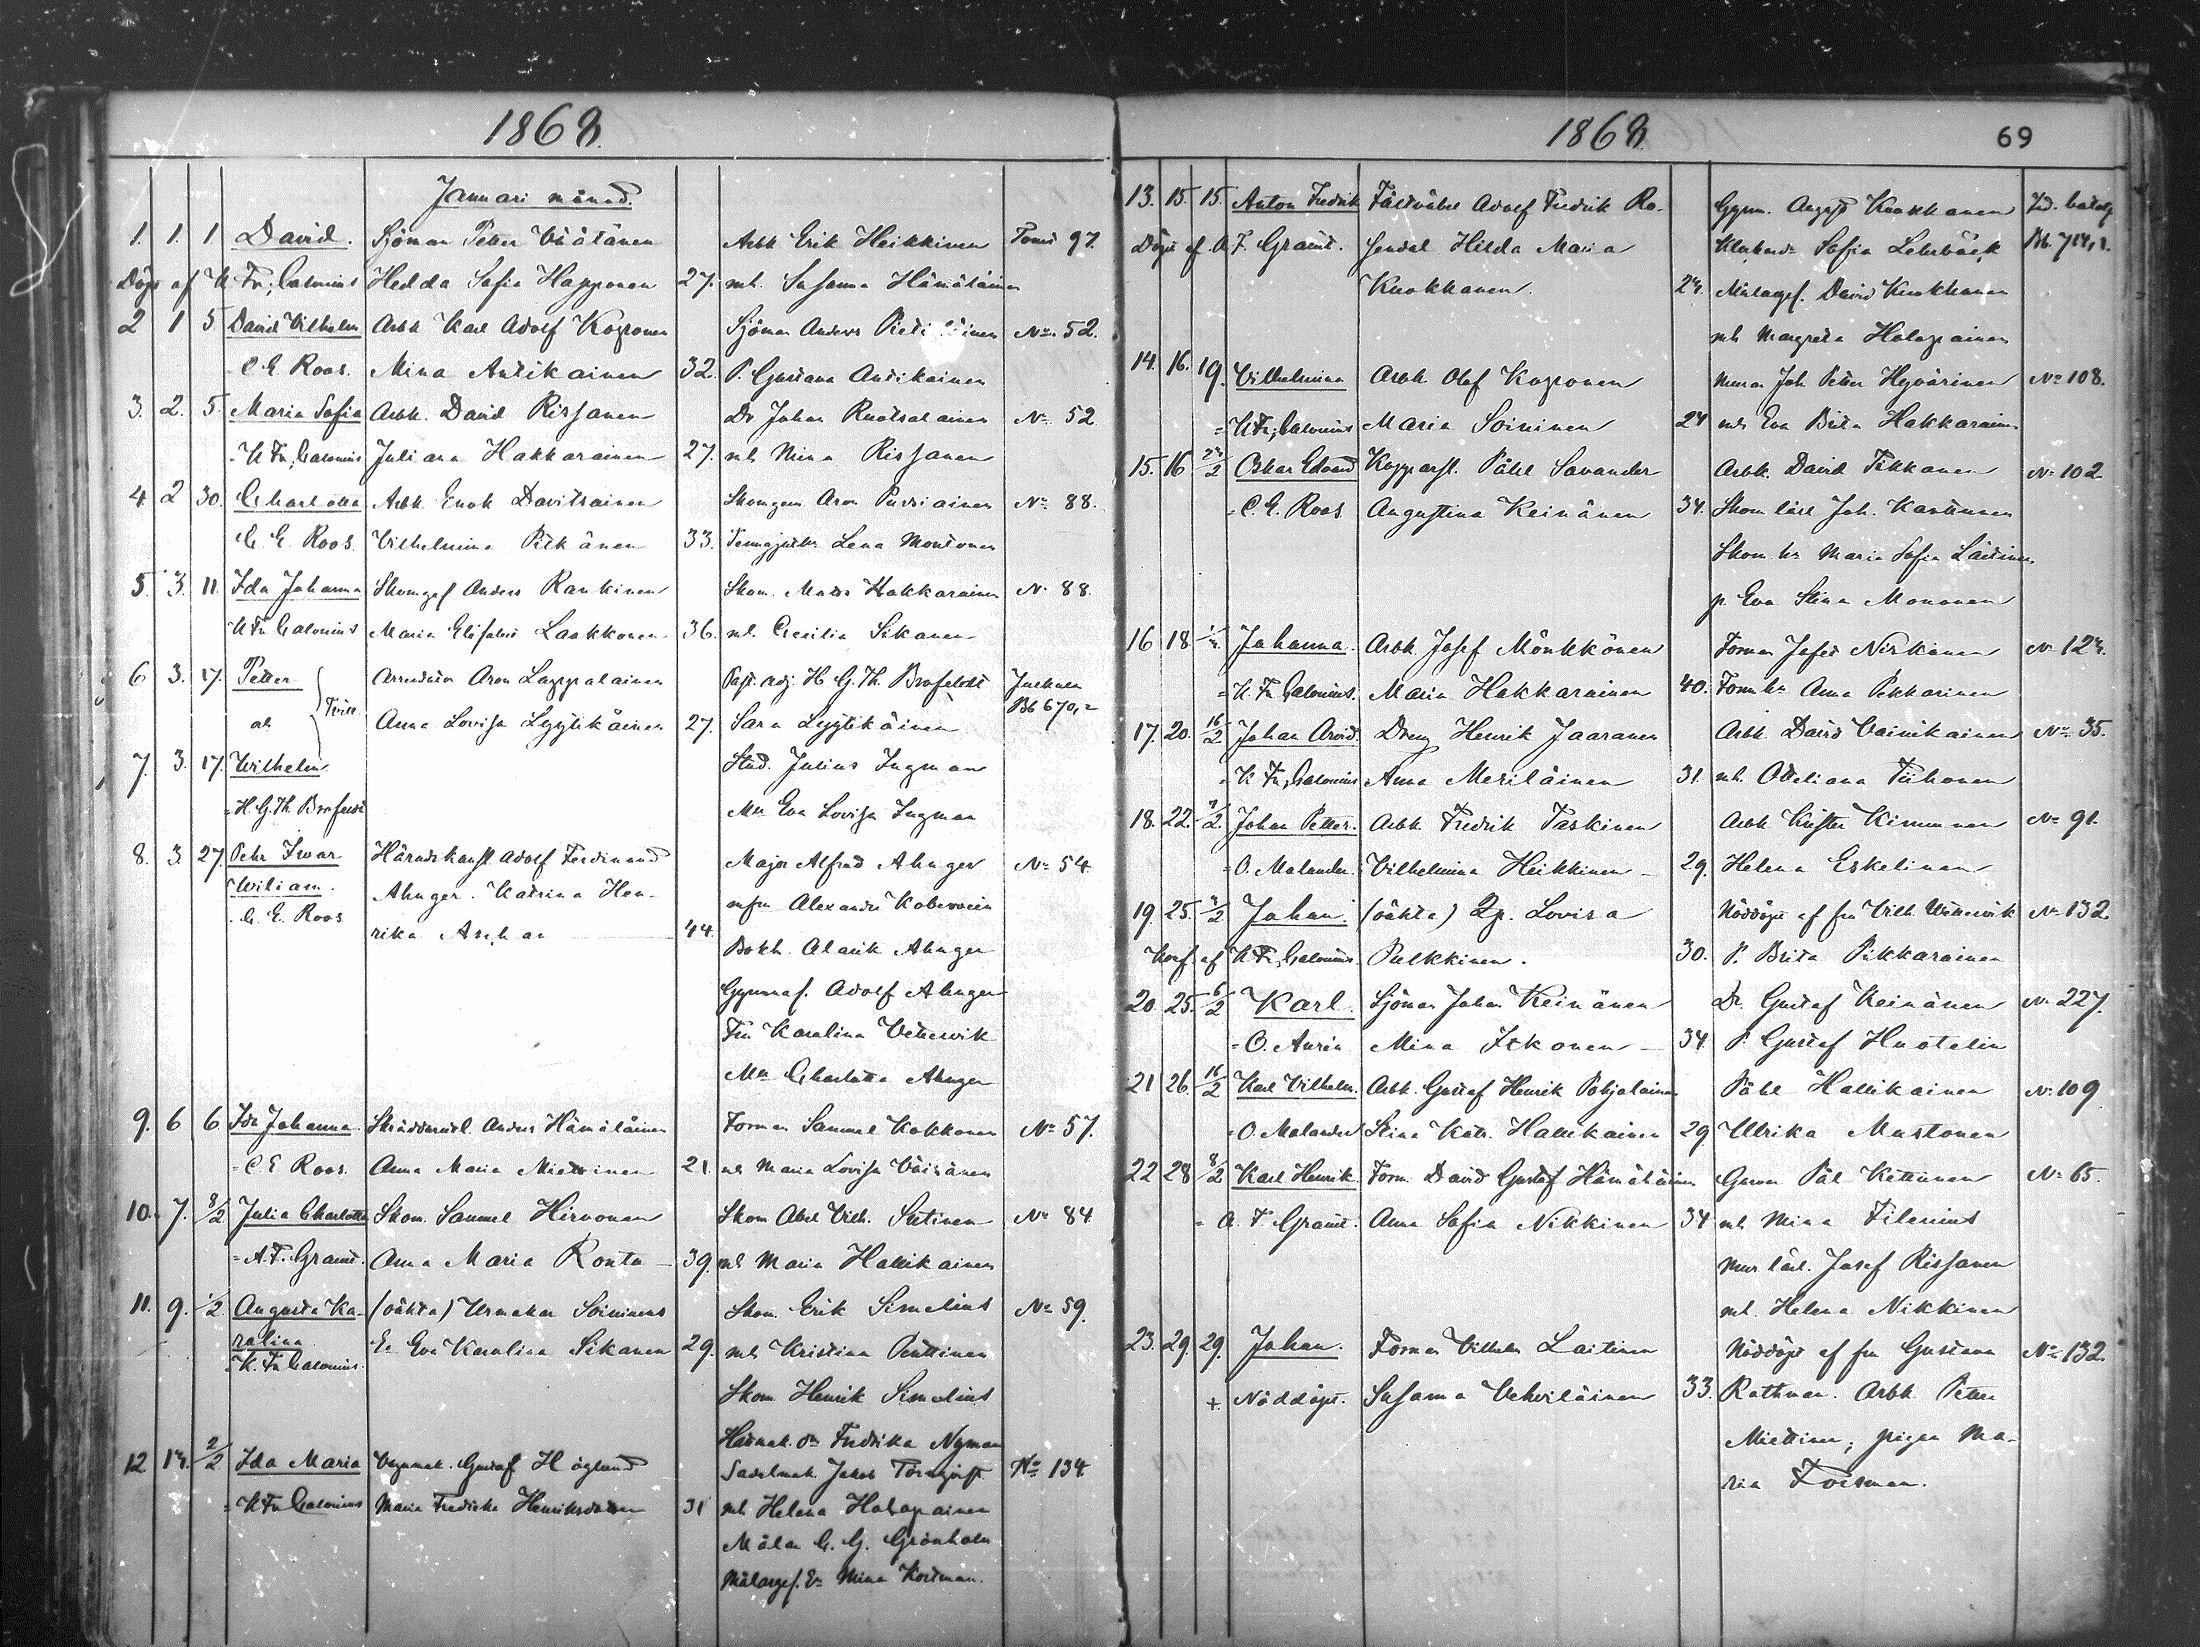 1868.
Januari månad.
1. 1. 1 David. Sjöman Petter Väätänen Arbk Erik Heikkinen Tomt 97.
Döpt af K Fr. Calonius Hedda Sofia Happonen 27. mh. Susanna Hämäläinen
2 1 5 David Vilhelm Arbk Karl Adolf Kopponen Sjöman Anders No 52.
C E Roos. Mina Antikainen 32. P. Gustava Antikainen
3. 2. 5. Maria Sofia Arbk. David Rissanen Dr Johan Ruotsalainen No 52
K Fr. Calonius Juliana Hakkarainen 27. mh Mina Rissanen
4. 2 30. Charlotta Arbk Enok Davitsainen Aron Pursiainen No 88.
C. E. Roos. Vilhelmina Pitkänen 33. Lena Montonen
5. 3. 11. Ida Johanna Skomgef Anders Rankinen Skom. Matts Hakkarainen No 88.
K Fr Calonius Maria Elisabet Laakkonen 36. mh. Cecilia Sikanen
6 3. 17. Petter Arendator Aron Lappalainen Past. adj. H. G. Th. Brofeldt
Tvill. Bb 670,2
och Anna Lovisa Lyytikäinen 27. Sara Lyytikäinen
7. 3. 17. Wilhelm. Stud. Julius Ingman
H. G. Th. Brofeldt Mll Eva Lovisa Ingman
8. 3. 27. Petr Ivar Häradskanst Adolf Ferdinand Major Alfred Ahnger No 54
Wiliam. Ahnger. Katrina Hen- Alexandr
C. E. Roos rika Aschan 44. Bokh. Alarik Ahnger
Gymnas. Adolf Ahnger
Fru Karolina
Mll Charlotta Ahnger
9. 6 6 Ida Johanna. Anders Hämäläinen Forman Samuel Kokkonen No 57.
C E Roos. Anna Maria Miettinen 21. mh Maria Lovisa Väisänen
10. 7. 8/2 Julia Charlotta Skom. Samuel Hirvonen Skom Abel Vilh. Sutinen No 84
A. F. Granit. Anna Maria Rontu 39. mh Maria Hallikainen
11. 9. 1/2 Augusta Ka- (oäkta) Urmakar Soininens Skom. Erik Simelius No 59.
rolina Ea Eva Karolina Sikanen 29. mh Kristina Penttinen
K. Fr Calonius. Skom. Henrik Simelius
Fredrika Nyman
12 14. 2/2 Ida Maria Vagnmak. Gustaf Höglund Sadelmak. Jakob Törnqvist No 134
K Fr Calonius Maria Fredrika Henriksdotter 31 mh Helena Holopainen
Målar C. G. Grönholm
Målargef. Ea Mina Kortman.
1868. 69
13. 15. 15. Anton Fredrik Fältväbel Adolf Fredrik Ro- Gymn. August Knokkanen
Döpt af A. F. Granit. sendal Hilda Maria Sofia Bb. 714,2.
Knokkanen. 24. Målargef. David Knokkanen
mh Margreta Holopainen
14. 16. 19. Vilhelmina Arbk. Olof Kopponen Murar Joh. Petter Hyvärinen No 108.
K Fr. Calonius Maria Soininen 24 mh Eva Brita Hakkarainen
15. 16 24/2 Oskar Edvard Påhl Savander Arbk. David Tikkanen No 102
C. E. Roos. Augustina Keinänen 34. Skom lärl Joh. Karttunen
Maria Sofia Laitinen
p. Eva Stina Mononen
16 18 Johanna. Arbk Josef Mönkkönen Forman Josef Niskanen No 124.
K Fr Calonius. Maria Hakkarainen 40. Anna Pekkarinen
17. 20. 16/2 Johan Arvid. Dreng Henrik Jaaranen Arbk David Vainikainen No 35.
K Fr. Calonius Anna Meriläinen 31. mh. Otteliana Tiihonen
18. 22. 9/2. Johan Petter. Arbk Fredrik Taskinen Arbk Krister Kinnunen No 91.
O. Malander. Vilhelmina Heikkinen 29. Helena Eskelinen
19. 25. 4/2 Johan. (oäkta) Qp. Lovisa Nöddöpt af fru Vilh. No 132.
Konf. af K Fr. Calonius. Pulkkinen. 30. P. Brita Pikkarainen
20. 25. 6/2 Karl. Sjöman Johan Keinänen Dr. Gustaf Keinänen No 227.
O. Aurén Mina Itkonen 34. P. Gustaf Huotelin
21 26. 16/2 Karl Vilhelm. Arbk. Gustaf Henrik Pohjalainen Påhl Hallikainen No 109
O. Malander Stina Katr. Hallikainen 29 Ulrika Mustonen
22 28 8/2 Karl Henrik Form. David Gustaf Hämäläinen Garvar Pål Kettunen No 65.
A. F Granit. Anna Sofia Nikkinen 34 mh Mina Filenius
Mur lärl. Josef Rissanen
mh. Helena Nikkinen
23. 29. 29. Johan. Forman Vilhelm Laitinen Nöddöpt af fru Gustava No 132.
+. Nöddöpt. Susanna Vehviläinen 33. Rothman. Arbk. Petter
Miettinen, pigan Ma-
ria Toisman.